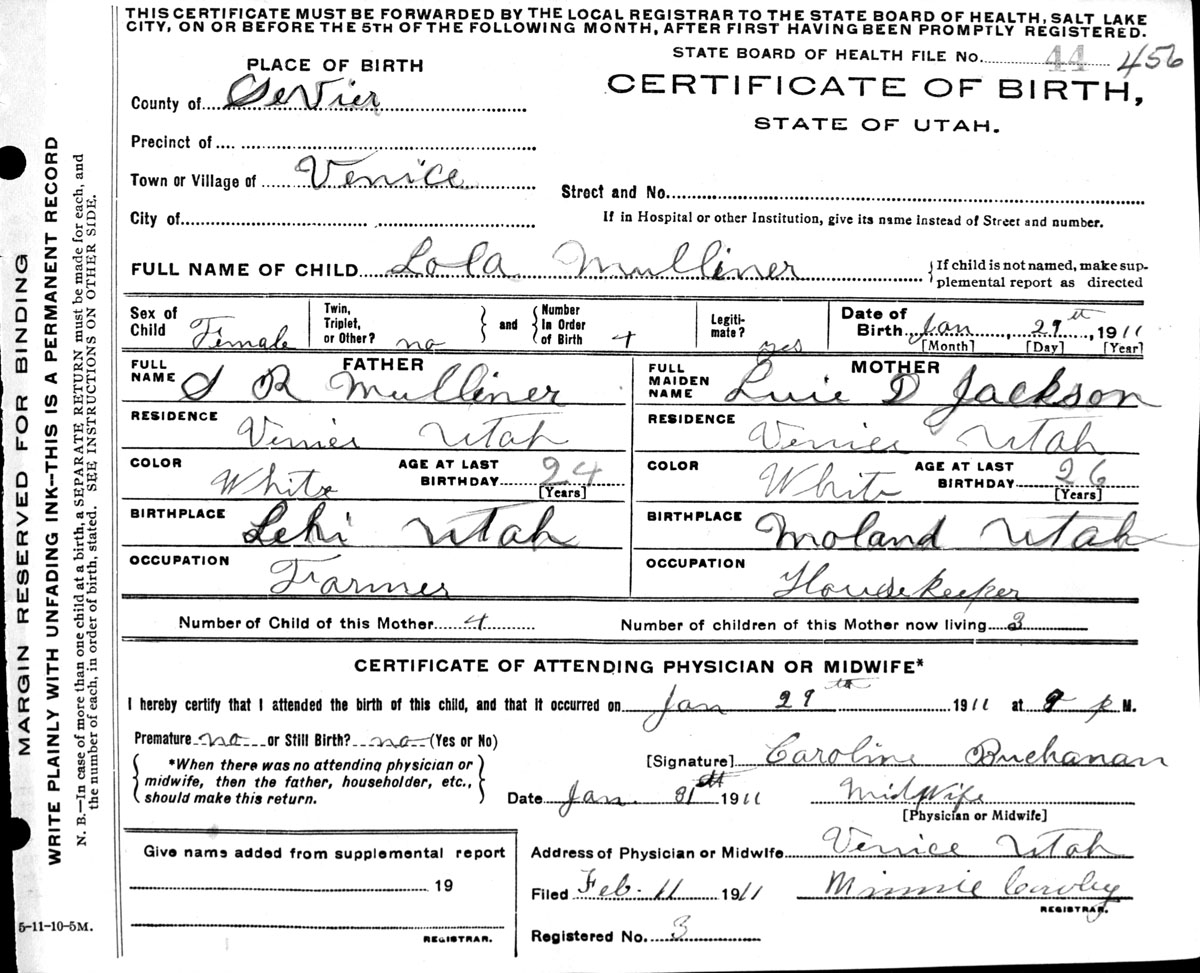 THIS CERTIFICATE MUST BE FORWARDED BY THE LOCAL REGISTRAR TO THE STATE BOARD OF HEALTH, SALT LAKE
CITY, ON OR BEFORE THE 5TH OF THE FOLLOWING MONTH, AFTER FIRST HAVING BEEN PROMPTLY REGISTERED.
STATE BOARD OF HEALTH FILE No. 44 456
PLACE OF BIRTH
CERTIFICATE OF BIRTH,
County of SeVier
STATE OF UTAH.
Precinct of
Town or Village of Venice
Street and No.
City of
If in Hospital or other Institution, give its name instead of Street and number.
FULL NAME OF CHILD Lola Mulliner {If child is not named, make sup-
plemental report as directed
Sex of Child Female
Twin, Triplet, or Other? no
and
Number In Order of Birth 4
Legiti-mate? yes
Date of Birth Jan 29th, 1911
[Month] [Day] [Year]
FATHER
FULL NAME S R Mulliner
MOTHER
FULL MAIDEN NAME D Jackson
RESIDENCE Venice Utah
RESIDENCE Venice Utah
COLOR White AGE AT LAST BIRTHDAY 24 [Years]
COLOR White AGE AT LAST BIRTHDAY 26 [Years]
BIRTHPLACE Lehi Utah
BIRTHPLACE Moland Utah
OCCUPATION Farmer
OCCUPATION Housekeeper
Number of Child of this Mother 4 Number of children of this Mother now living 3
CERTIFICATE OF ATTENDING PHYSICIAN OR MIDWIFE*
I hereby certify that I attended the birth of this child, and that it occurred on Jan 29th 1911 at 9 p M.
Premature no or Still Birth? no (Yes or No)
*When there was no attending physician or
midwife, then the father, householder, etc.,
should make this return.
[Signature] Caroline Buchanan
Date Jan. 31st 1911 MidWife
[Physician or Midwife]
Give name added from supplemental report
19
REGISTRAR.
Address of Physician or Midwife Venice Utah
Filed Feb. 11 1911 Minnie
REGISTRAR.
Registered No. 3
5-11-10-5M.
MARGIN RESERVED FOR BINDING
WRITE PLAINLY WITH UNFADING INK--THIS IS A PERMANENT RECORD
N. B.—In case of more than one child at a birth, a SEPARATE RETURN must be made for each, and
the number of each, in order of birth, stated. SEE INSTRUCTIONS ON OTHER SIDE.